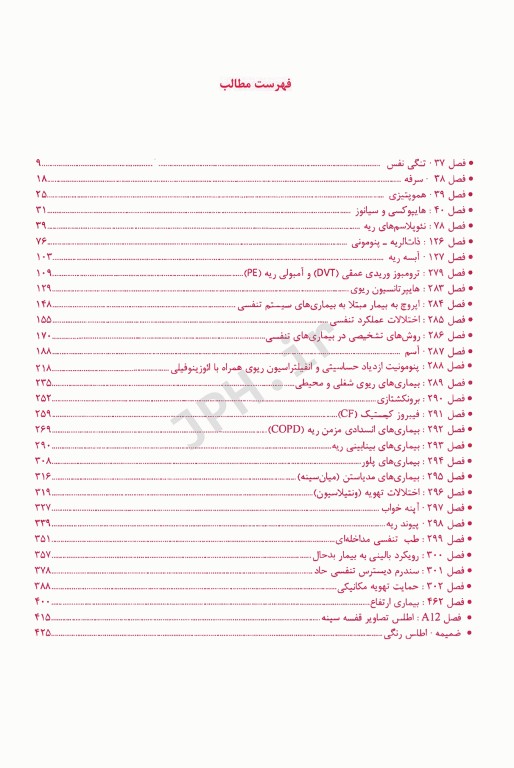 فهرست مطالب
• فصل ۳۷ · تنگی نفس ۹
• فصل ۳۸ · سرفه ۱۸
• فصل ۳۹ · هموپتیزی ۲۵
• فصل ۴۰ : هایپوکسی و سیانوز ۳۱
• فصل ۷۸ : نئوپلاسم‌های ریه ۳۹
• فصل ۱۲۶ : ذات‌الریه ــ پنومونی ۷۶
• فصل ۱۲۷ · آبسه ریه ۱۰۳
• فصل ۲۷۹ : ترومبوز وریدی عمقی (DVT) و آمبولی ریه (PE) ۱۰۹
• فصل ۲۸۳ : هایپرتانسیون ریوی ۱۲۹
• فصل ۲۸۴ : اپروچ به بیمار مبتلا به بیماری‌های سیستم تنفسی ۱۴۸
• فصل ۲۸۵ : اختلالات عملکرد تنفسی ۱۵۵
• فصل ۲۸۶ : روش‌های تشخیصی در بیماری‌های تنفسی ۱۷۰
• فصل ۲۸۷ · آسم ۱۸۸
• فصل ۲۸۸ : پنومونیت ازدیاد حساسیتی و انفیلتراسیون ریوی همراه با ائوزینوفیلی ۲۱۸
• فصل ۲۸۹ : بیماری‌های ریوی شغلی و محیطی ۲۳۵
• فصل ۲۹۰ : برونکشتازی ۲۵۲
• فصل ۲۹۱ : فیبروز کیستیک (CF) ۲۵۹
• فصل ۲۹۲ : بیماری‌های انسدادی مزمن ریه (COPD) ۲۶۹
• فصل ۲۹۳ : بیماری‌های بینابینی ریه ۲۹۰
• فصل ۲۹۴ : بیماری‌های پلور ۳۰۸
• فصل ۲۹۵ : بیماری‌های مدیاستن (میان‌سینه) ۳۱۶
• فصل ۲۹۶ : اختلالات تهویه (ونتیلاسیون) ۳۱۹
• فصل ۲۹۷ · آپنه خواب ۳۲۷
• فصل ۲۹۸ · پیوند ریه ۳۳۹
• فصل ۲۹۹ : طب تنفسی مداخله‌ای ۳۵۱
• فصل ۳۰۰ : رویکرد بالینی به بیمار بدحال ۳۵۷
• فصل ۳۰۱ : سندرم دیسترس تنفسی حاد ۳۷۸
• فصل ۳۰۲ : حمایت تهویه مکانیکی ۳۸۸
• فصل ۴۶۲ : بیماری ارتفاع ۴۰۰
• فصل A12 : اطلس تصاویر قفسه سینه ۴۱۵
• ضمیمه · اطلس رنگی ۴۲۵
JPH.ir